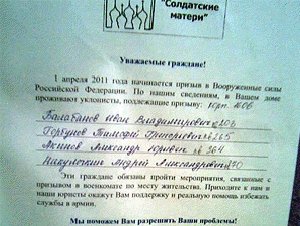 "Солдатские
матери"
Уважаемые граждане!
1 апреля 2011 года начинается призыв в Вооруженные силы
Российской Федерации. По нашим сведениям, в Вашем доме
проживают уклонисты, подлежащие призыву:
Балабанов Иван Владимирович 203
Горбунов Тимофей Григорьевич №265
Акимов Александр Юрьевич № 264
Андрей Александрович
Эти граждане обязаны пройти мероприятия, связанные с
призывом в военкомате по месту жительства. Приходите к нам и
наши юристы окажут Вам поддержку и реальную помощь избежать
службы в армии.
Мы поможем Вам разрешить Ваши проблемы!